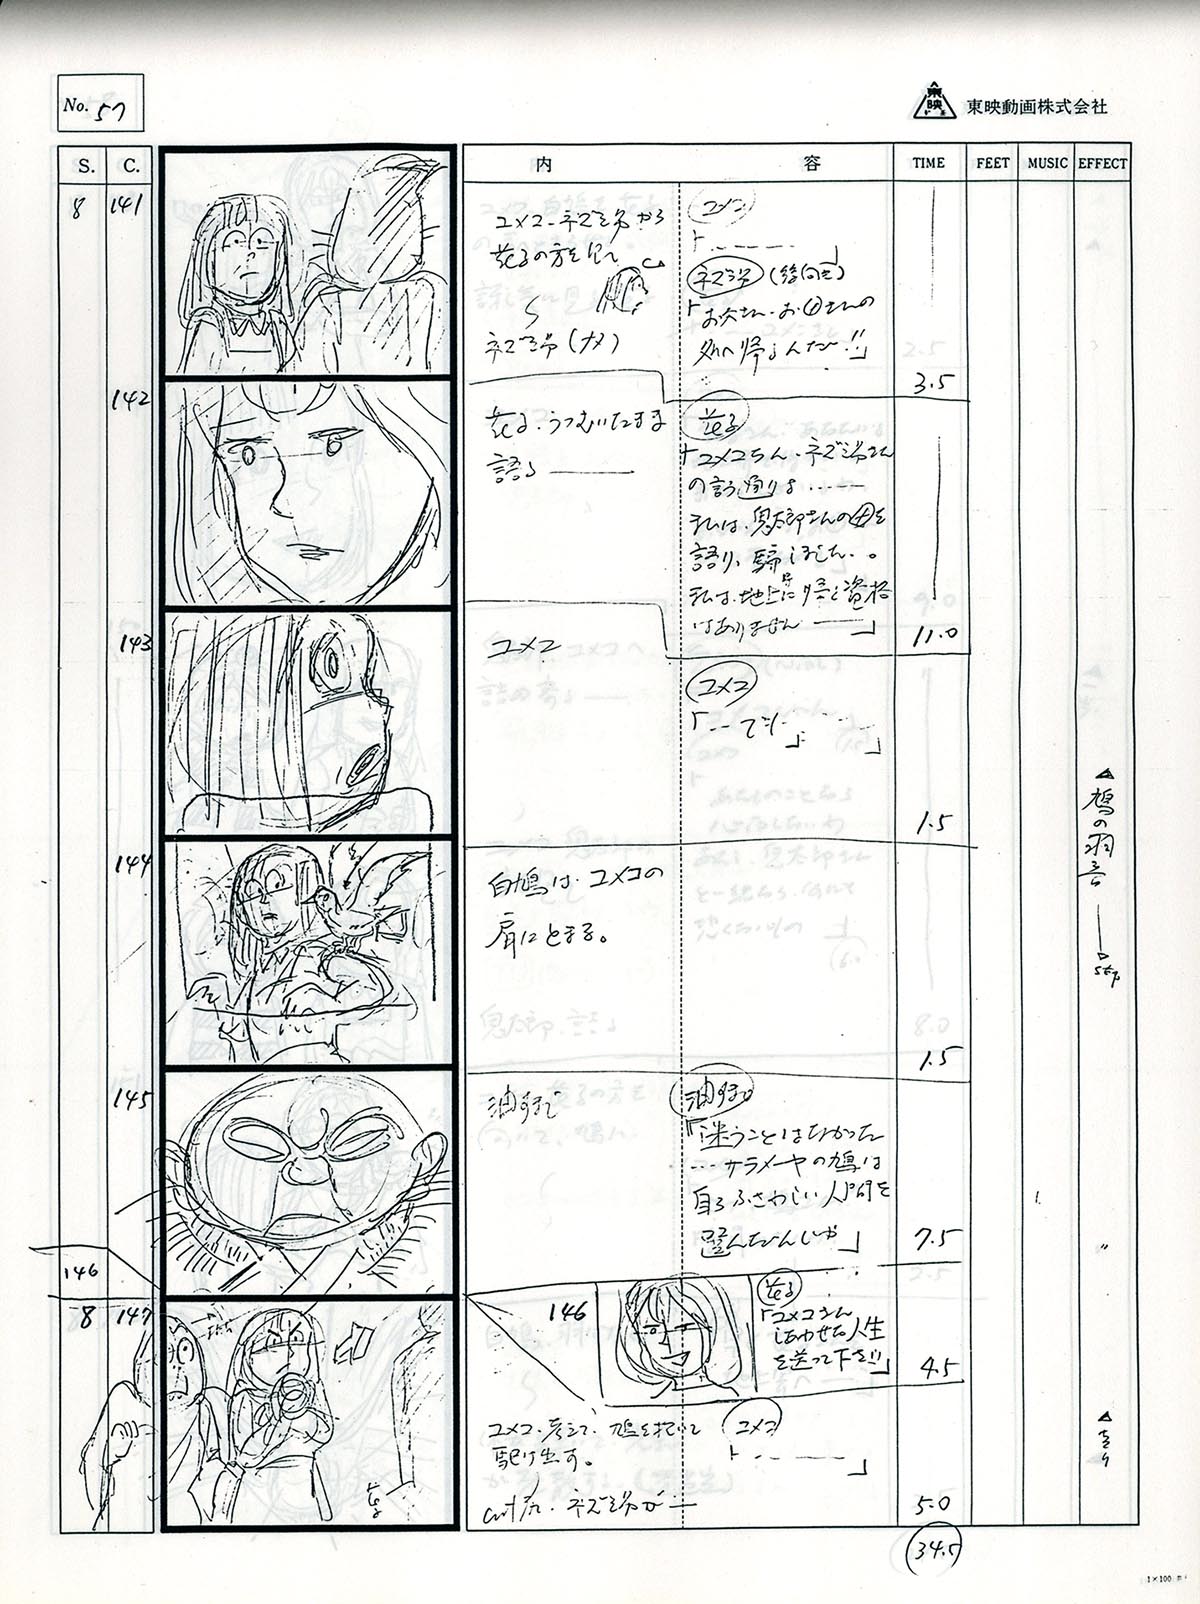 No. 57
東映動画株式会社
S. C. 内 容 TIME FEET MUSIC EFFECT
8 141
ユメコ・ネズミ男から
花子の方を見て
ネズミ男(ナメ)
ユメコ
「・・ーーーー」
ネズミ男(後向き)
「お父さん・お母さんの
処へ帰るんだ!!」
3.5
142
花子・うつむいたまま
語る ―――
花子
「ユメコちゃん・ネズミ男さん
の言う通りよ……
私は、鬼太郎さんの母を
語り、騙しました・。
私は、地上に帰る資格
はありません ――」
11.0
143
ユメコ
ユメコ
「……でも……」
1.5
144
白鳩は・ユメコの
肩にとまる。
鳩の羽音
1.5
145
油すまし
油すまし
「迷うことはなかった
…サラメーヤの鳩は
自らふさわしい人間を
選んだんじゃ」
7.5
146
146
花子
「ユメコちゃん
しあわせな人生
を送って下さい!!」
4.5
8 147
花子
ユメコ・考えて、鳩を抱いて
駆け出す。
cut尻・ネズミ男が―
ユメコ
「・ーーーー」
5.0
34.5